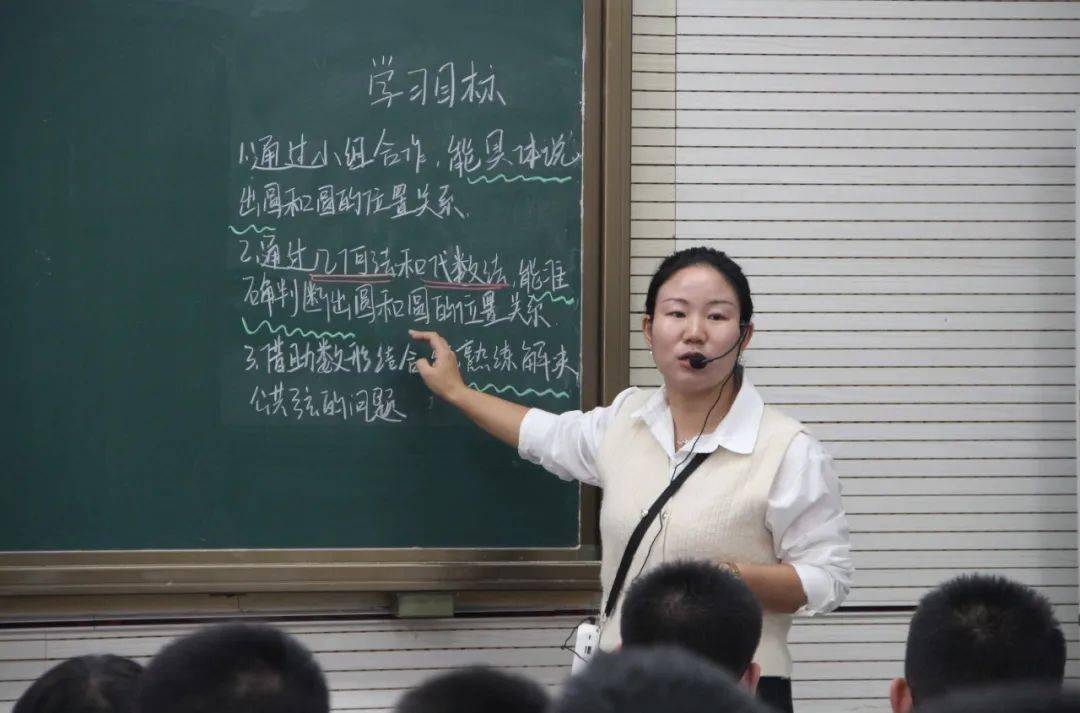 学习目标
1.通过小组合作,能具体说
出圆和圆的位置关系.
2.通过几何法和代数法,能准
确判断出圆和圆的位置关系.
3.借助数形结合 熟练解决
公共弦的问题